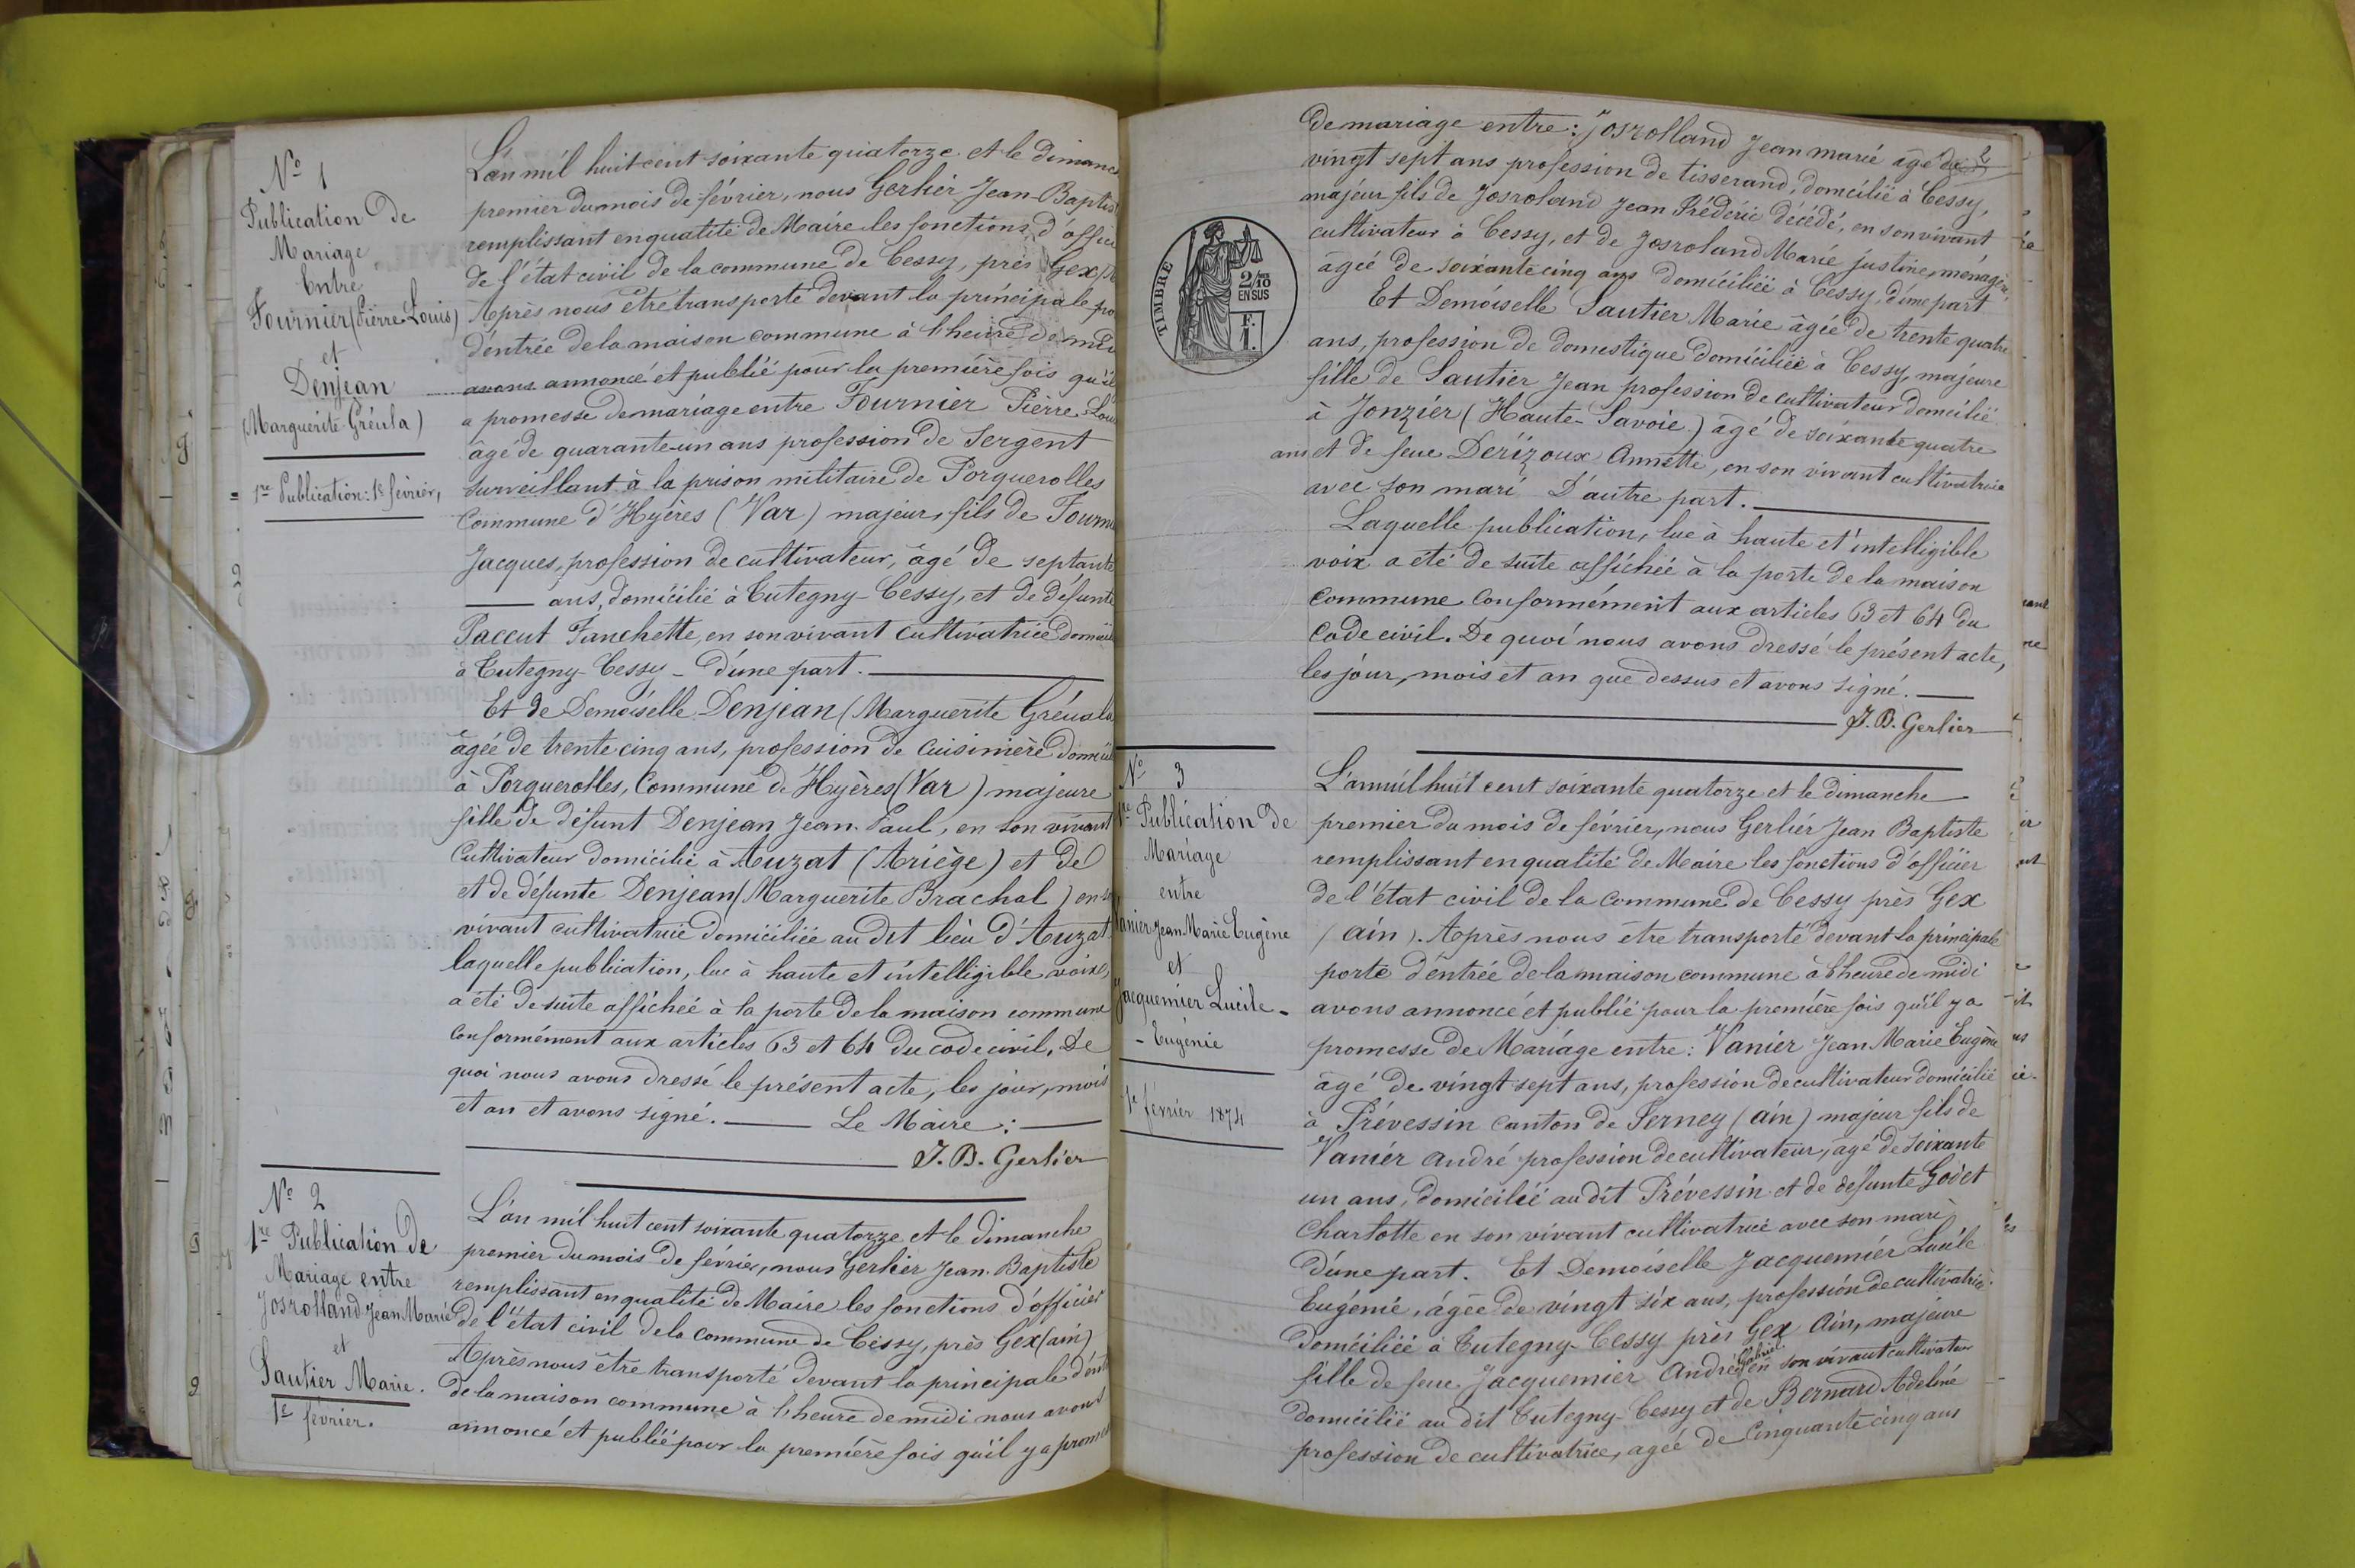 N° 1
Publication de
Mariage
Entre
Fournier (Pierre Louis)
et
Denjean
(Marguerite Gréula)
1re Publication: 1r février,
L'an mil huit cent soixante quatorze et le dimanc
premier du mois de février, nous Gerlier Jean-Baptist
remplissant en qualité de Maire les fonctions d'offici
de l'état civil de la commune de Cessy, près Gex
Après nous être transporté devant la principale po
d'entrée de la maison commune à l'heure de midi
avons annoncé et publié pour la première fois qu'il
a promesse de mariage entre Fournier Pierre Loui
âgé de quarante-un ans profession de Sergent
surveillant à la prison militaire de Porquerolles
Commune d'Hyères (Var) majeur, fils de Fourni
Jacques, profession de cultivateur, âgé de septante
ans, domicilié à Tutegny-Cessy, et de défunte
Paccut Fanchette, en son vivant cultivatrice domicili
à Tutegny-Cessy - d'une part.
Et de Demoiselle Denjean (Marguerite Gréula
âgée de trente cinq ans, profession de Cuisinière domicili
à Porquerolles, Commune de Hyères (Var) majeure
fille de défunt Denjean Jean-Paul, en son vivant
Cultivateur domicilié à Auzat (Ariège) et de
et de défunte Denjean (Marguerite Brachal) en so
vivant cultivatrice domiciliée au dit lieu d'Auzat
laquelle publication, lue à haute et intelligible voix,
a été de suite affichée à la porte de la maison commune
conformément aux articles 63 et 64 du code civil. De
quoi nous avons dressé le présent acte, les jour, mois
et an et avons signé. Le Maire:
J. B. Gerlier
N° 2
1re Publication de
Mariage entre
Josrolland Jean Marie
et
Sautier Marie.
1r février.
L'an mil huit cent soixante quatorze et le dimanche
premier du mois de février, nous Gerlier Jean-Baptiste
remplissant en qualité de Maire les fonctions d'officier
de l'état civil de la commune de Cessy, près Gex (ain)
Après nous être transporté devant la principale d'ent
de la maison commune à l'heure de midi nous avons
annoncé et publié pour la première fois qu'il y a promes
2
de mariage entre: Josrolland Jean marie agé de
vingt sept ans profession de tisserand, domicilié à Cessy,
majeur fils de Josroland Jean Frédéric décédé, en son vivant
cultivateur à Cessy, et de Josroland Marie justine, ménagère,
âgée de soixante cinq ans domiciliée à Cessy, d'une part
Et Demoiselle Sautier Marie âgée de trente quatre
ans, profession de domestique domiciliée à Cessy, majeure
fille de Sautier Jean profession de cultivateur domicilié
à Jonzier (Haute-Savoie) âgé de soixante quatre
ans et de feue Derizoux Annette, en son vivant cultivatrice
avec son mari D'autre part.
Laquelle publication, lue à haute et intelligible
voix a été de suite affichée à la porte de la maison
Commune Conformément aux articles 63 et 64 du
Code civil. De quoi nous avons dressé le présent acte,
les jour, mois et an que dessus et avons signé.
J. B. Gerlier
TIMBRE
2/10
EN SUS
F.
1.
N° 3
1re Publication de
Mariage
entre
Vanier Jean Marie Eugène
et
Jacquemier Lucile-
- Eugénie
1r février 1874
L'an mil huit cent soixante quatorze et le dimanche
premier du mois de février, nous Gerlier Jean Baptiste
remplissant en qualité de Maire les fonctions d'officier
de l'état civil de la commune de Cessy près Gex
(ain). Après nous être transporté devant la principale
porte d'entrée de la maison commune à l'heure de midi
avons annoncé et publié pour la première fois qu'il y a
promesse de Mariage entre: Vanier Jean Marie Eugène
âgé de vingt sept ans, profession de cultivateur domicilié
à Prévessin canton de Ferney (ain) majeur fils de
Vanier André profession de cultivateur, agé de soixante
un ans, domicilié au dit Prévessin et de défunte Godet
Charlotte en son vivant cultivatrice avec son mari
d'une part. Et Demoiselle Jacquemier Lucile
Eugénie, âgée de vingt six ans, profession de cultivatrice
domiciliée à Tutegny-Cessy près Gex Ain, majeure
fille de feue Jacquemier André Gabriel en son vivant cultivateur
domicilié au dit Tutegny-Cessy et de Bernard Adeline
profession de cultivatrice, agée de Cinquante cinq ans